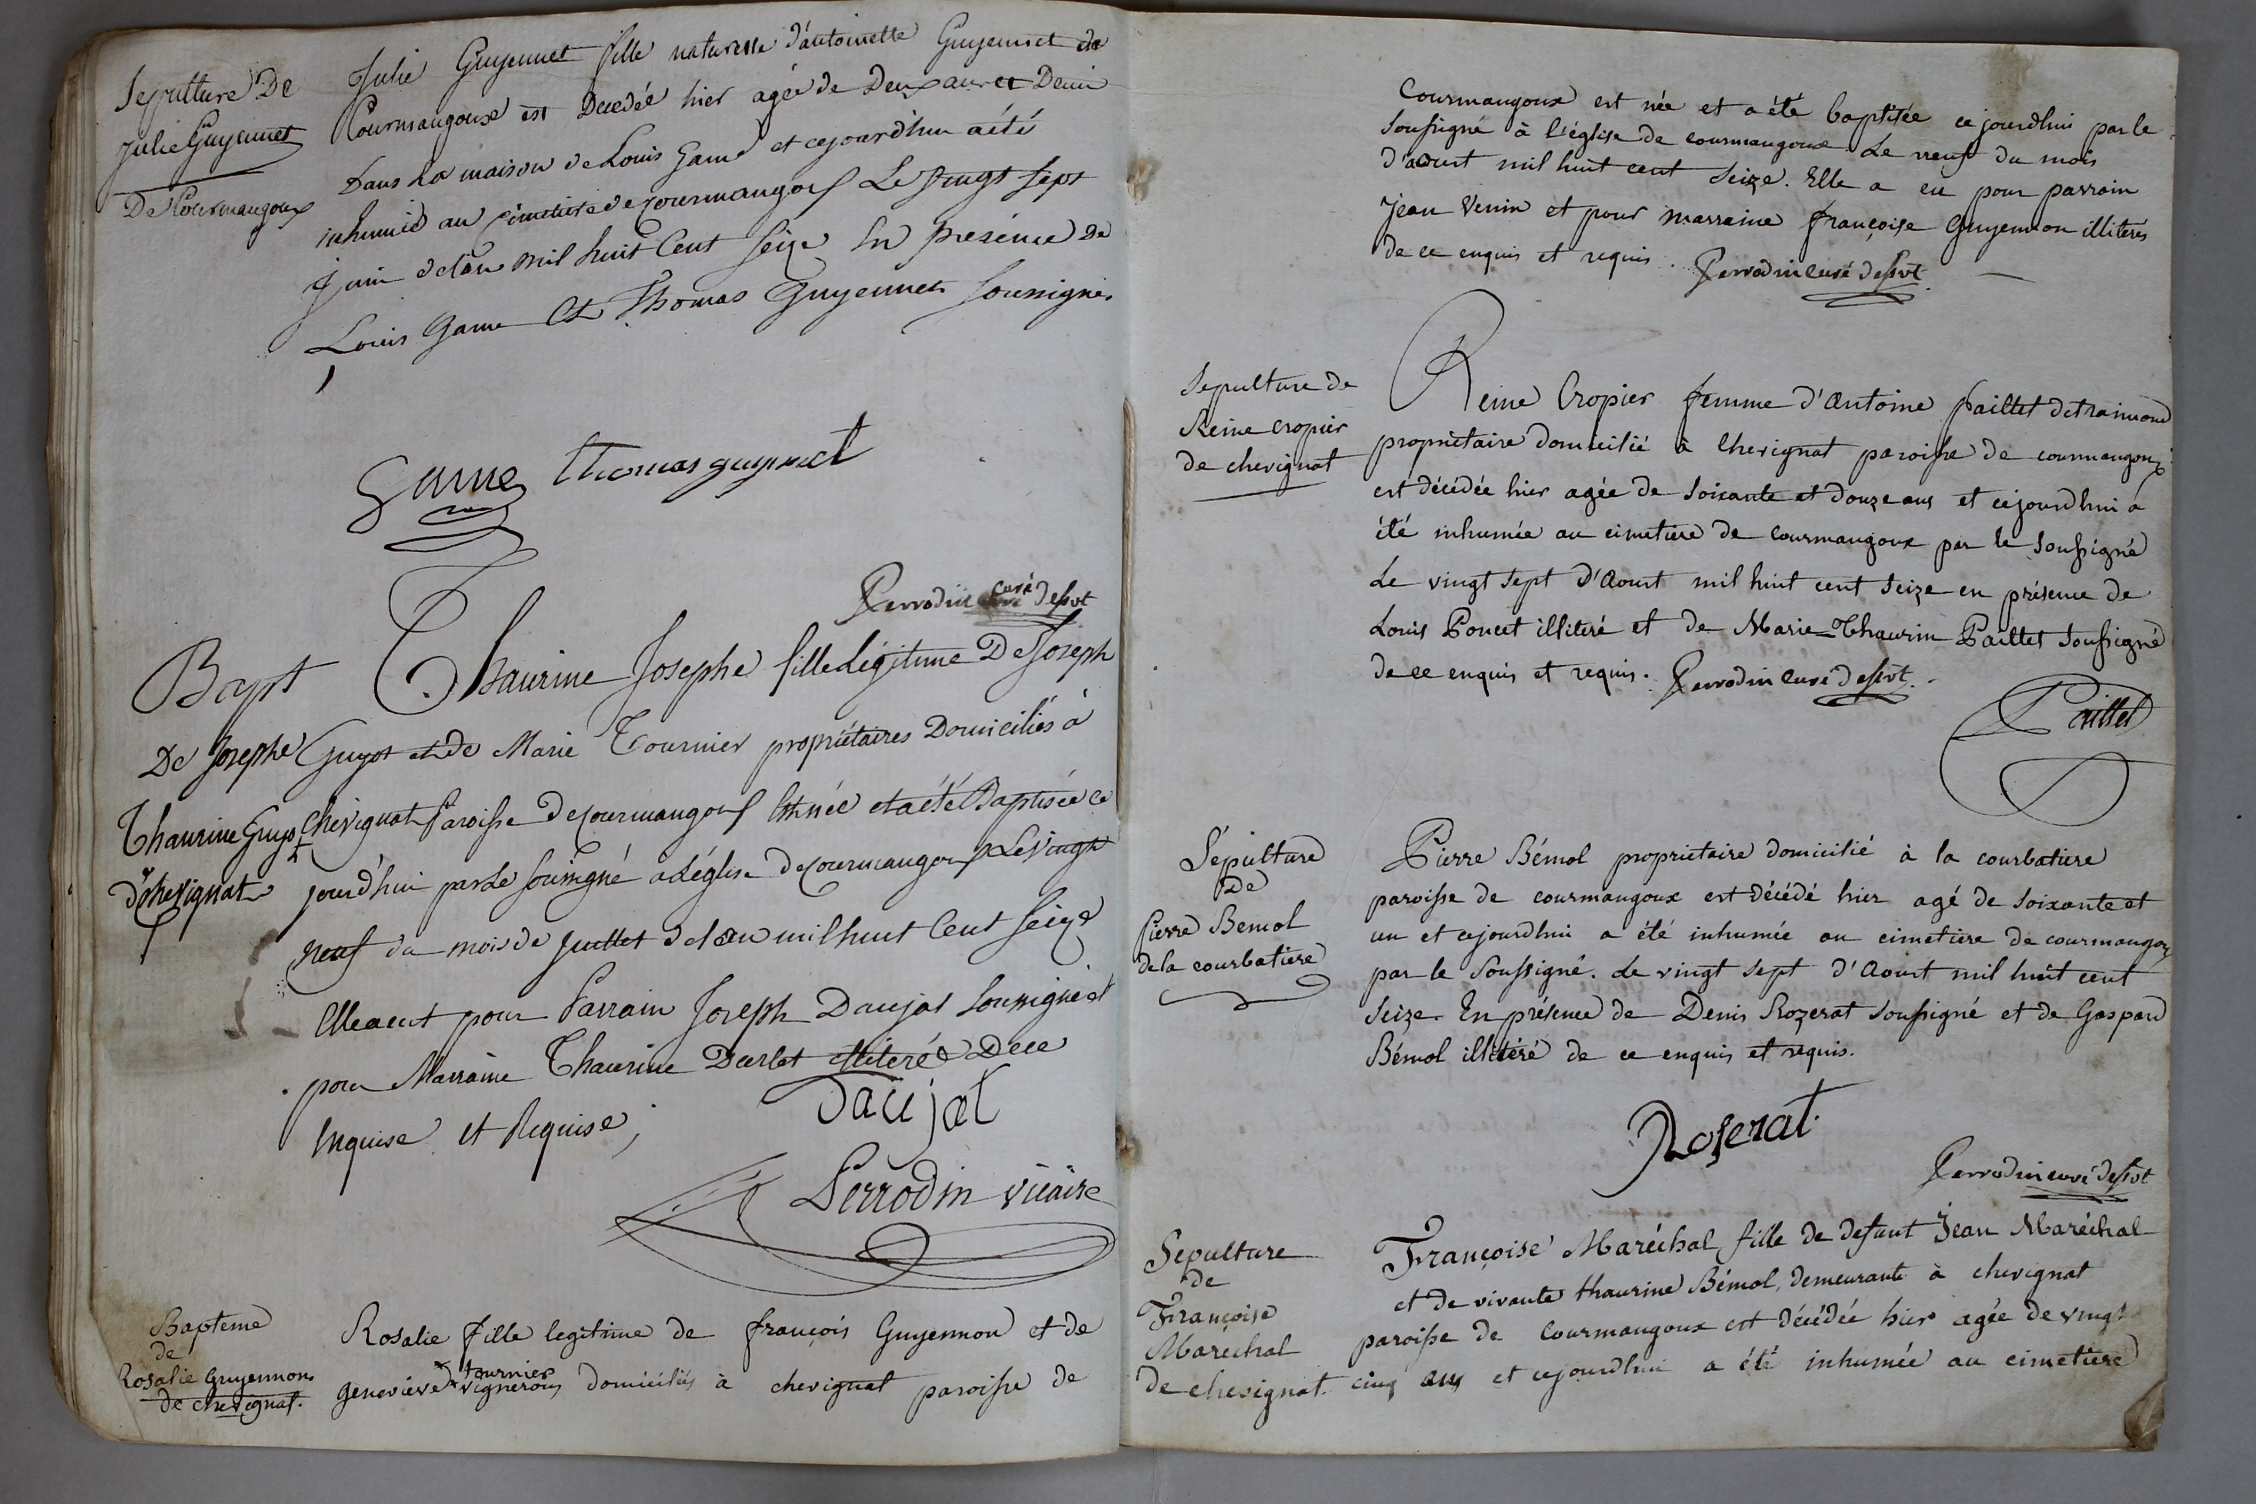 Sepulture De
Julie Guyennet
De Courmangoux
Julie Guyennet fille naturelle d'antoinette Guyennet de
Courmangoux est Decedée hier agée de Deux ans et Demi
Dans la maison de Louis Game et cejourd'hui a été
inhumée au cimetiere de courmangoux Le vingt sept
juin de l'an mil huit Cent seize En présence De
Louis Game Et Thomas Guyennet soussignés
Game thomas guyennet
Perrodin curé desvt
Bapt
De Josephe
Thaurine Guyot
de Chevignat
Thaurine Josephe fille Légitime De Joseph
Guyot et de Marie Tournier propriétaires Domiciliés à
Chevignat Paroisse de courmangoux Est née et a été Baptisée ce
jourd'hui par Le soussigné a L'église de courmangoux Le vingt
neuf du mois de juillet de l'an mil huit Cent seize
Elle a eut pour Parrain Joseph Daujat soussigné et
pour Marraine Thaurine Darlet illiteré De ce
Enquise et Requise ;
Daujat
Perrodin vicaire
Bapteme
de
Rosalie Guyennon
de chevignat.
Rosalie fille legitime de françois Guyennon et de
tournier
genevieve vignerons domiciliés à chevignat paroisse de
Courmangoux est née et a été baptisée ce jourdhui par le
soussigné à l'église de courmangoux Le neuf du mois
d'aoust mil huit cent seize. Elle a eu pour parrain
jean Venin et pour marraine françoise Guyennon illiterés
de ce enquis et requis. Perrodin curé desvt.
Sepulture de
Reine cropier
de chevignat
Reine Cropier femme d'Antoine paillet detraimond
proprietaire domicilié à Chevignat paroisse de courmangoux
est décédée hier agée de soixante et douze ans et cejourdhui a
été inhumée au cimetiere de courmangoux par le soussigné
Le vingt sept d'Aoust mil huit cent seize en présence de
Louis Poncet illiteré et de Marie-Thaurin Paillet soussigné
de ce enquis et requis. Perrodin curé desvt.
Paillet
Sépulture
De
pierre Bemol
de la courbatiere
Pierre Bémol proprietaire domicilié à la courbatiere
paroisse de courmangoux est décédé hier agé de soixante et
un et cejourdhui a été inhumée au cimetiere de courmangoux
par le soussigné. Le vingt sept d'Aoust mil huit cent
seize. En présence de Denis Rozerat soussigné et de Gaspard
Bémol illitéré de ce enquis et requis.
Roserat.
Perrodin curé desvt
Sepulture
de
Françoise
Marechal
de chevignat.
Françoise Maréchal fille de defunt Jean Maréchal
et de vivante thaurine Bémol, demeurante à chevignat
paroisse de Courmangoux est décédée hier agée de vingt
cinq ans et cejourdhui a été inhumée au cimetiere